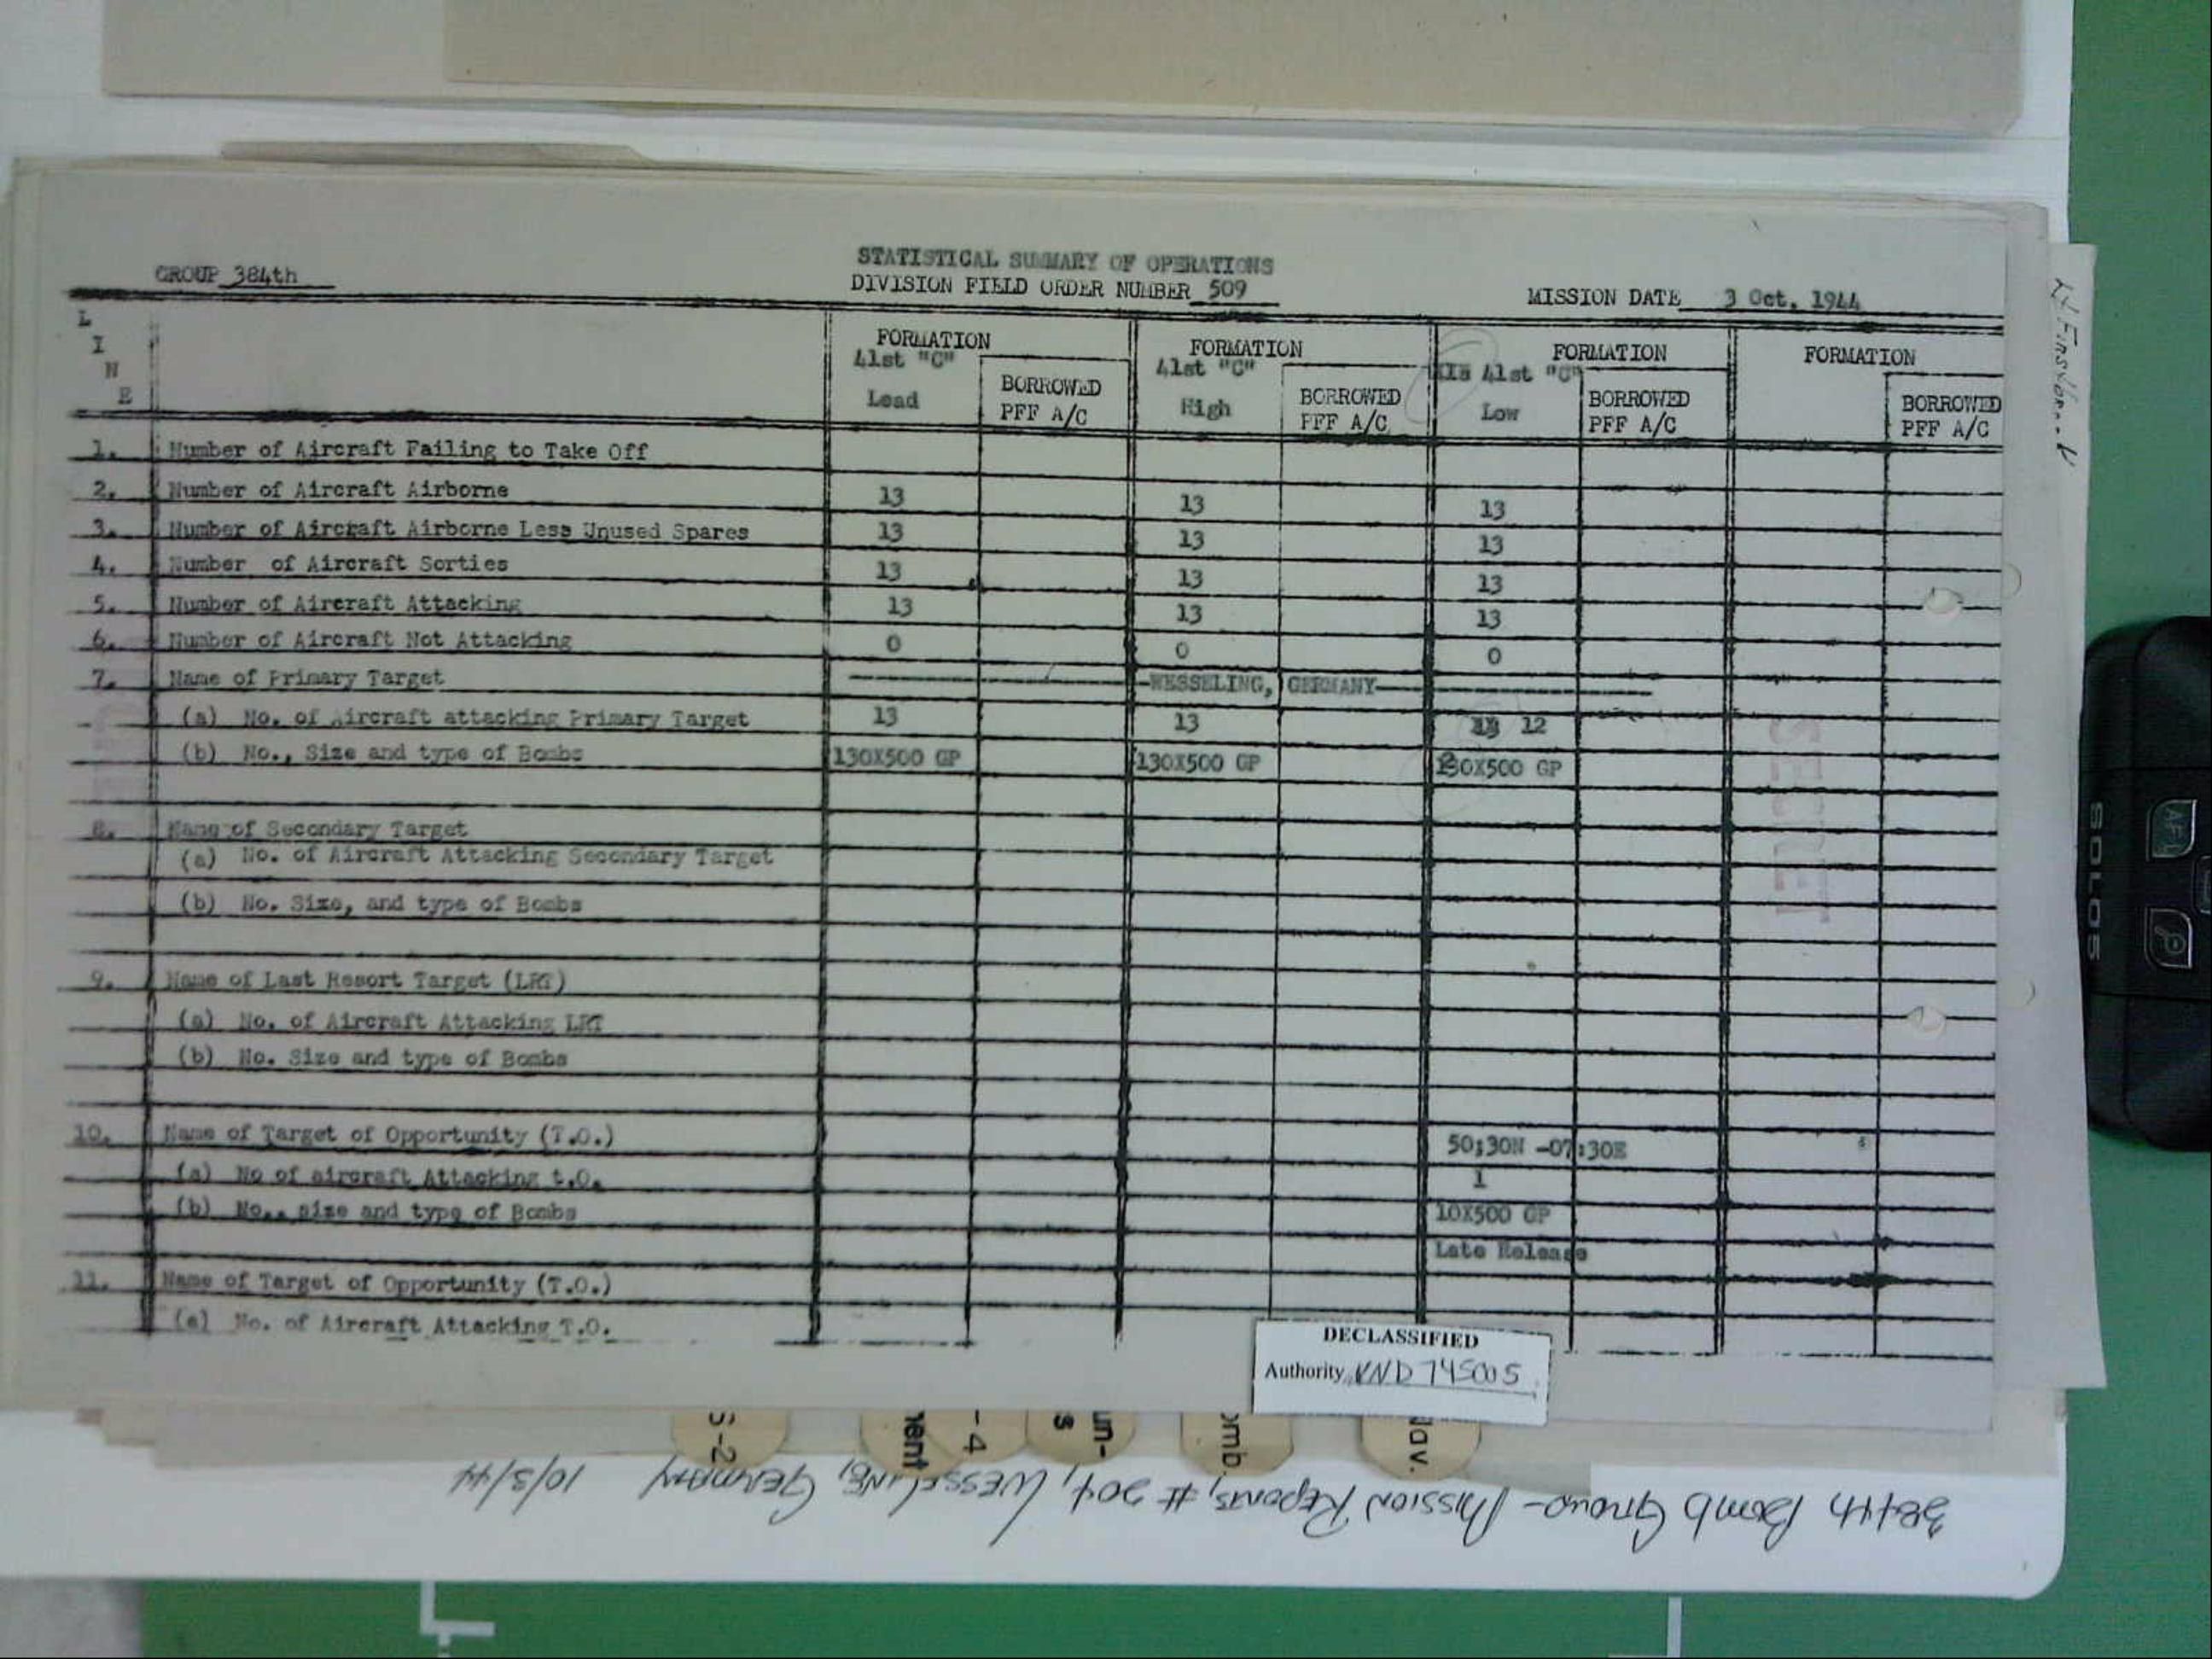 STATISTICAL SUMMARY OF OPERATIONS
GROUP 384th DIVISION FIELD ORDER NUMBER 509 MISSION DATE 3 Oct. 1944
LINE
FORMATION FORMATION FORMATION FORMATION
41st "C" 41st "C" 41st "C"
Lead BORROWED PFF A/C High BORROWED PFF A/C Low BORROWED PFF A/C BORROWED PFF A/C
1. Number of Aircraft Failing to Take Off
2. Number of Aircraft Airborne 13 13 13
3. Number of Aircraft Airborne Less Unused Spares 13 13 13
4. Number of Aircraft Sorties 13 13 13
5. Number of Aircraft Attacking 13 13 13
6. Number of Aircraft Not Attacking 0 0 0
7. Name of Primary Target WESSELING, GERMANY
(a) No. of Aircraft attacking Primary Target 13 13 12
(b) No., Size and type of Bombs 130X500 GP 130X500 GP GP
8. Name of Secondary Target
(a) No. of Aircraft Attacking Secondary Target
(b) No. Size, and type of Bombs
9. Name of Last Resort Target (LRT)
(a) No. of Aircraft Attacking LRT
(b) No. Size and type of Bombs
10. Name of Target of Opportunity (T.O.) 50;30N -07:30E
(a) No of aircraft Attacking t.O. 1
(b) No., size and type of Bombs 10X500 GP
Late Release
11. Name of Target of Opportunity (T.O.)
(a) No. of Aircraft Attacking T.O.
SECRET
DECLASSIFIED
Authority NND 745005
S-2
ment
-4
un-
s
omb.
Nav.
384th Bomb Group - Mission Reports, # 204, Wesseling, Germany 10/3/44
SOLO5